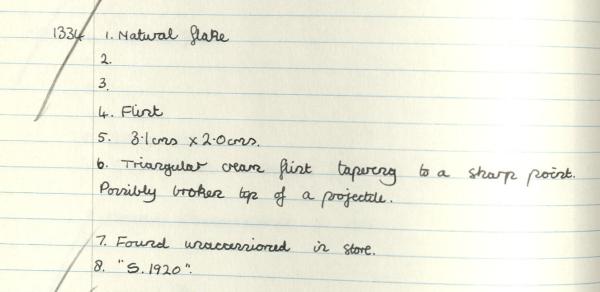 1334 1. Natural flake
2.
3.
4. Flint
5. 3.1cms x 2.0cms.
6. Triangular cream flint tapering to a sharp point.
Possibly broken tip of a projectile.
7. Found unaccessioned in store.
8. "S.1920".